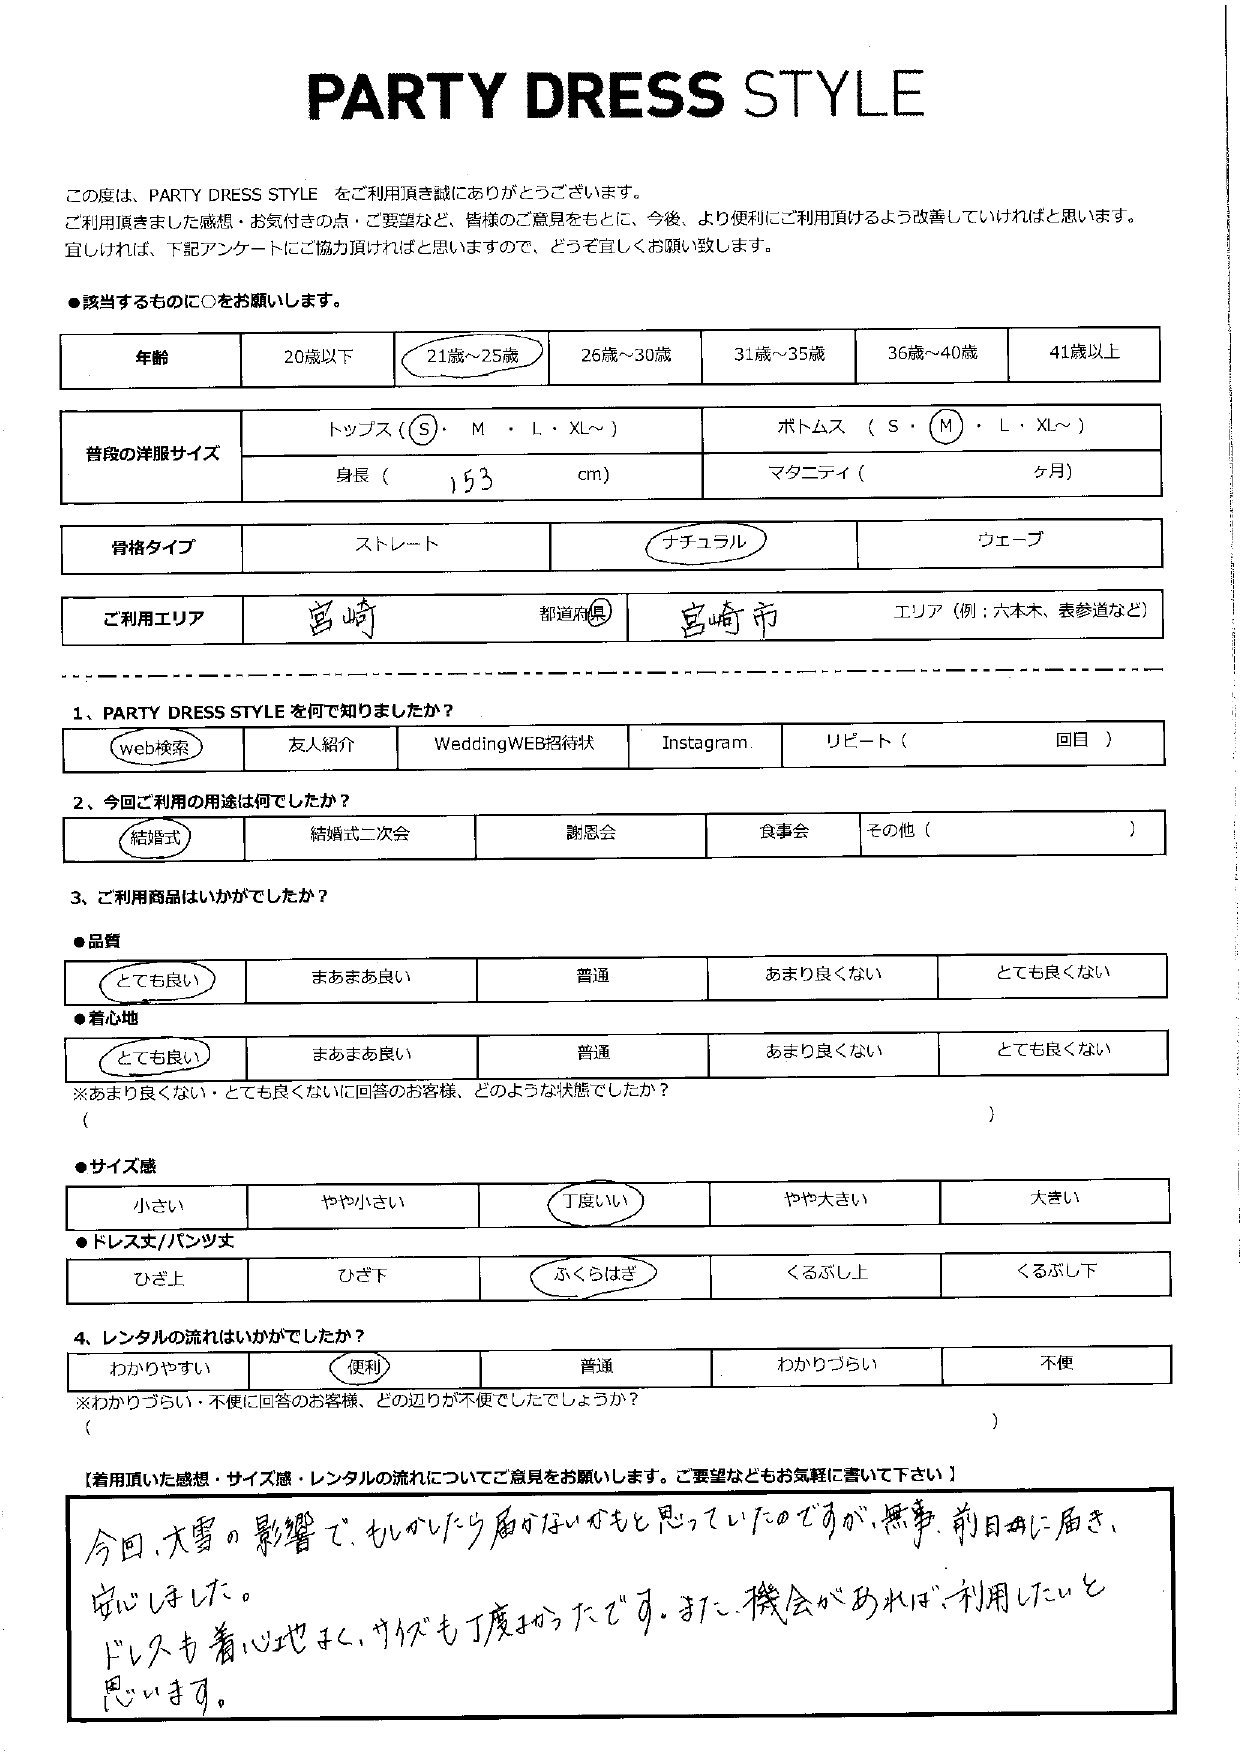 PARTY DRESS STYLE
この度は、PARTY DRESS STYLE をご利用頂き誠にありがとうございます。
ご利用頂きました感想・お気付きの点・ご要望など、皆様のご意見をもとに、今後、より便利にご利用頂けるよう改善していければと思います。
宜しければ、下記アンケートにご協力頂ければと思いますので、どうぞ宜しくお願い致します。
●該当するものに○をお願いします。
年齢 20歳以下 21歳～25歳 26歳～30歳 31歳～35歳 36歳～40歳 41歳以上
普段の洋服サイズ
トップス (S・ M ・ L・ XL～ ) ボトムス ( S・ M ・ L・ XL～ )
身長 ( 153 cm) マタニティ ( ヶ月)
骨格タイプ ストレート ナチュラル ウェーブ
ご利用エリア 宮崎 都道府県 宮崎市 エリア（例；六本木、表参道など）
1、PARTY DRESS STYLEを何で知りましたか？
web検索 友人紹介 WeddingWEB招待状 Instagram リピート ( 回目 )
2、今回ご利用の用途は何でしたか？
結婚式 結婚式二次会 謝恩会 食事会 その他 ( )
3、ご利用商品はいかがでしたか？
●品質
とても良い まあまあ良い 普通 あまり良くない とても良くない
●着心地
とても良い まあまあ良い 普通 あまり良くない とても良くない
※あまり良くない・とても良くないに回答のお客様、どのような状態でしたか？
( )
●サイズ感
小さい やや小さい 丁度いい やや大きい 大きい
●ドレス丈/パンツ丈
ひざ上 ひざ下 ふくらはぎ くるぶし上 くるぶし下
4、レンタルの流れはいかがでしたか？
わかりやすい 便利 普通 わかりづらい 不便
※わかりづらい・不便に回答のお客様、どの辺りが不便でしたでしょうか？
( )
【着用頂いた感想・サイズ感・レンタルの流れについてご意見をお願いします。ご要望などもお気軽に書いて下さい】
今回、大雪の影響で、もしかしたら届かないかもと思っていたのですが、無事、前日に届き、
安心しました。
ドレスも着心地よく、サイズも丁度よかったです。また、機会があれば、利用したいと
思います。